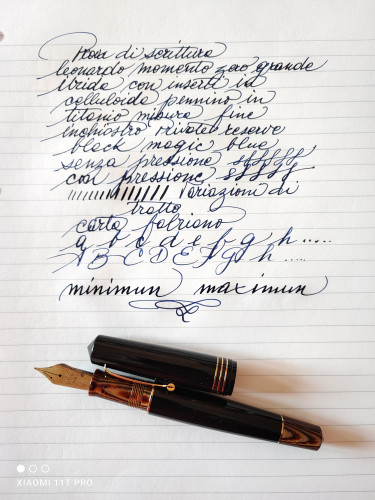 Prova di scrittura
leonardo momento zero grande
ibrida con inserti in
celluloide pennino in
titanio misura fine
inchiostro Private reserve
black magic blue
senza pressione
con pressione
Variazioni di
tratto
carta fabriano
a b c d e f g h .....
A B C D E F G h .....
minimun maximun
XIAOMI 11T PRO